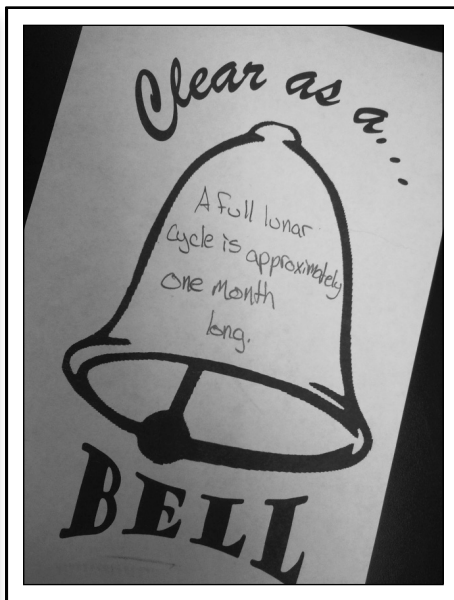 Clear as a...
A full lunar
cycle is approximately
one month
long.
BELL